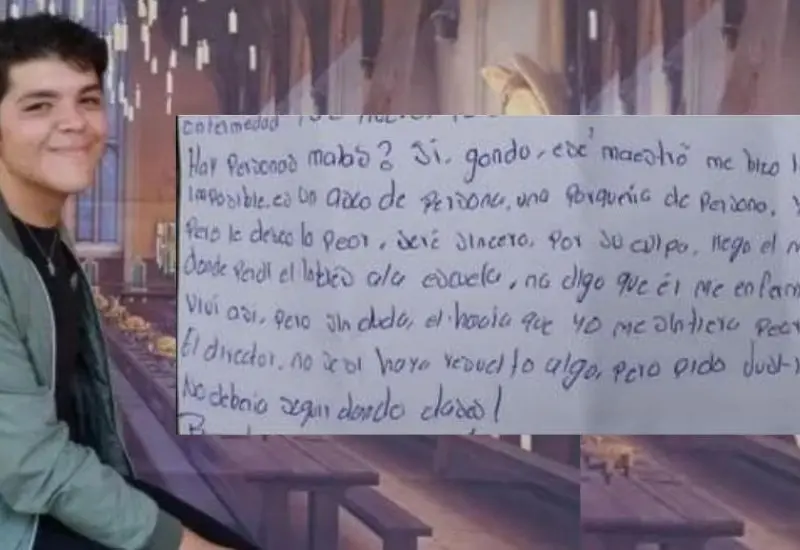 enfermedad
Hay Personas malas? Si, gando, ese maestro me hizo
imposible, es un asco de Persona, una Porqueria de Persono,
Pero le deseo lo Peor, seré sincero, Por su culpa, llego el
donde Perdi el interés a la escuela, no digo que él me
vivi asi, pero sin duda, el hacia que yo me sintiera Peor
El director, no se si haya resuelto algo, pero pido
No deberia seguir dando clases!